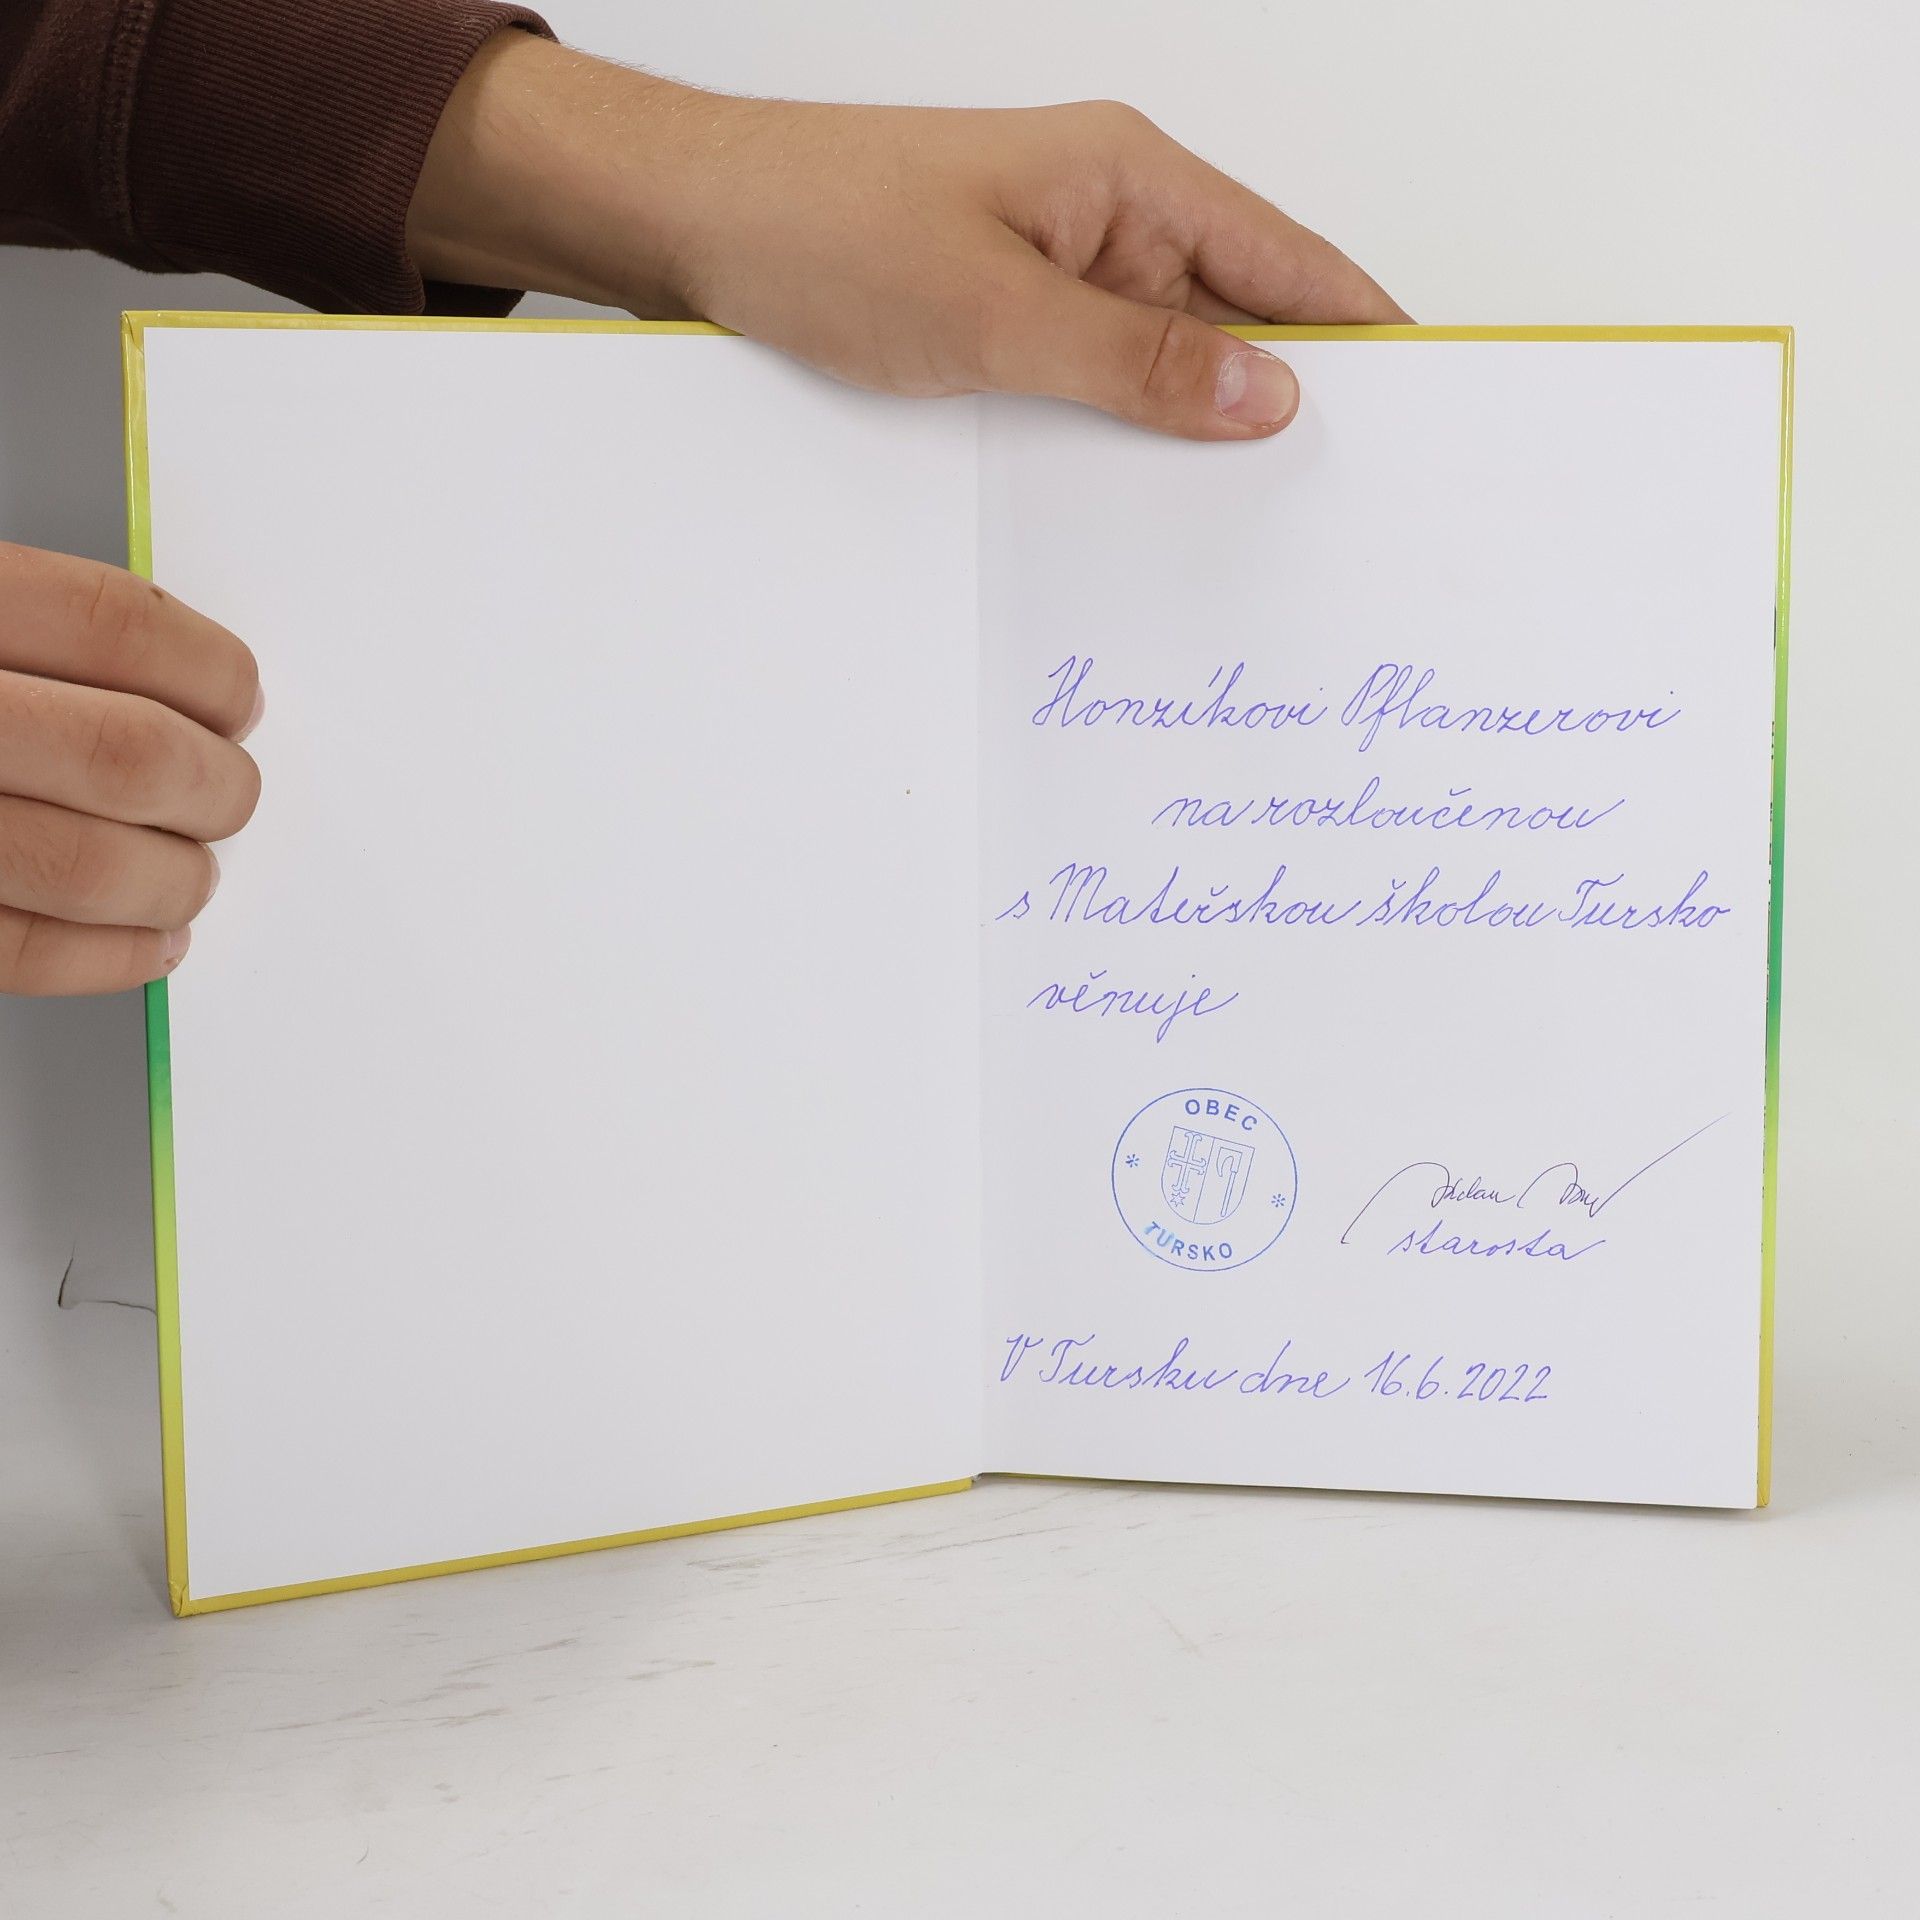 Honzíkovi Pflanzerovi
na rozloučenou
s Mateřskou školou Tursko
věnuje
OBEC
TURSKO
starosta
V Tursku dne 16.6.2022